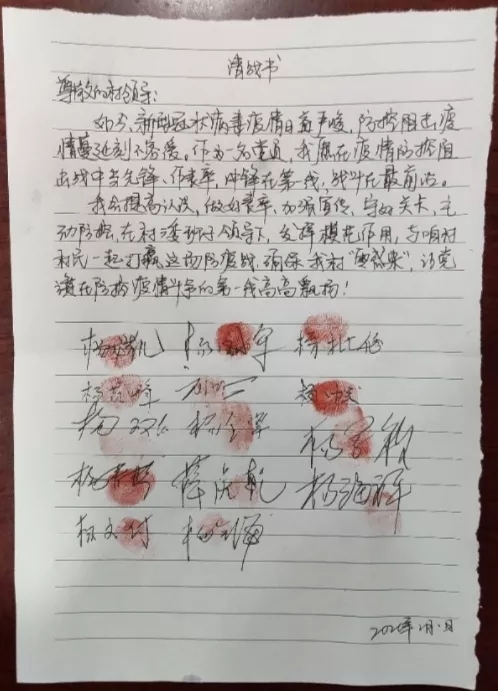 请战书
尊敬的村领导:
如今,新型冠状病毒疫情日益严峻,防控阻击疫
情蔓延刻不容缓。作为一名党员,我愿在疫情防控阻
击战中当先锋、作表率,冲锋在第一线,战斗在最前沿。
我会提高认识,做好表率,加强宣传、守好关卡,主
动防控,在村委班子领导下,发挥模范作用,与咱村
村民一起打赢这场防疫战,确保我村"零感染",让党
旗在防控疫情斗争的第一线高高飘扬!
杨 军 杨
杨 峰
杨双 杨金
薛庆乾 杨
杨文付 杨
2020年2月1日